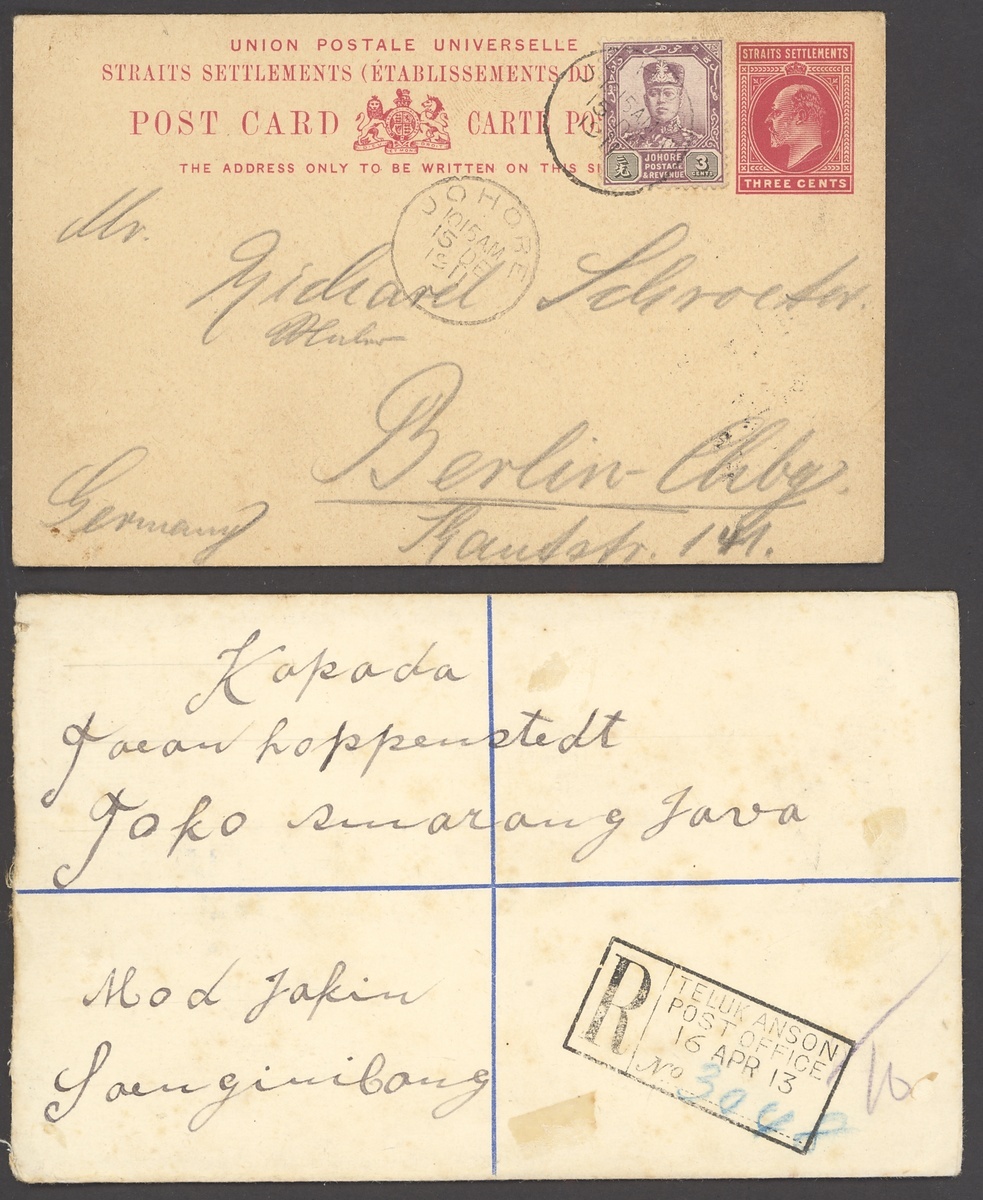 UNION POSTALE UNIVERSELLE
STRAITS SETTLEMENTS (ÉTABLISSEMENTS DU
POST CARD CARTE PO
THE ADDRESS ONLY TO BE WRITTEN ON THIS SI
JOHORE
POSTAGE
& REVENUE
3
CENTS
STRAITS SETTLEMENTS
THREE CENTS
JOHORE
10 15 AM
15 DE
1911
Mr.
Richard Schroeter.
Berlin-Chbg.
Germany
Kantstr. 141.
Kapada
Toean hoppenstedt
Toko smarang Java
Mod Jakin
Soenginibong
R
TELUK ANSON
POST OFFICE
16 APR 13
No 3048